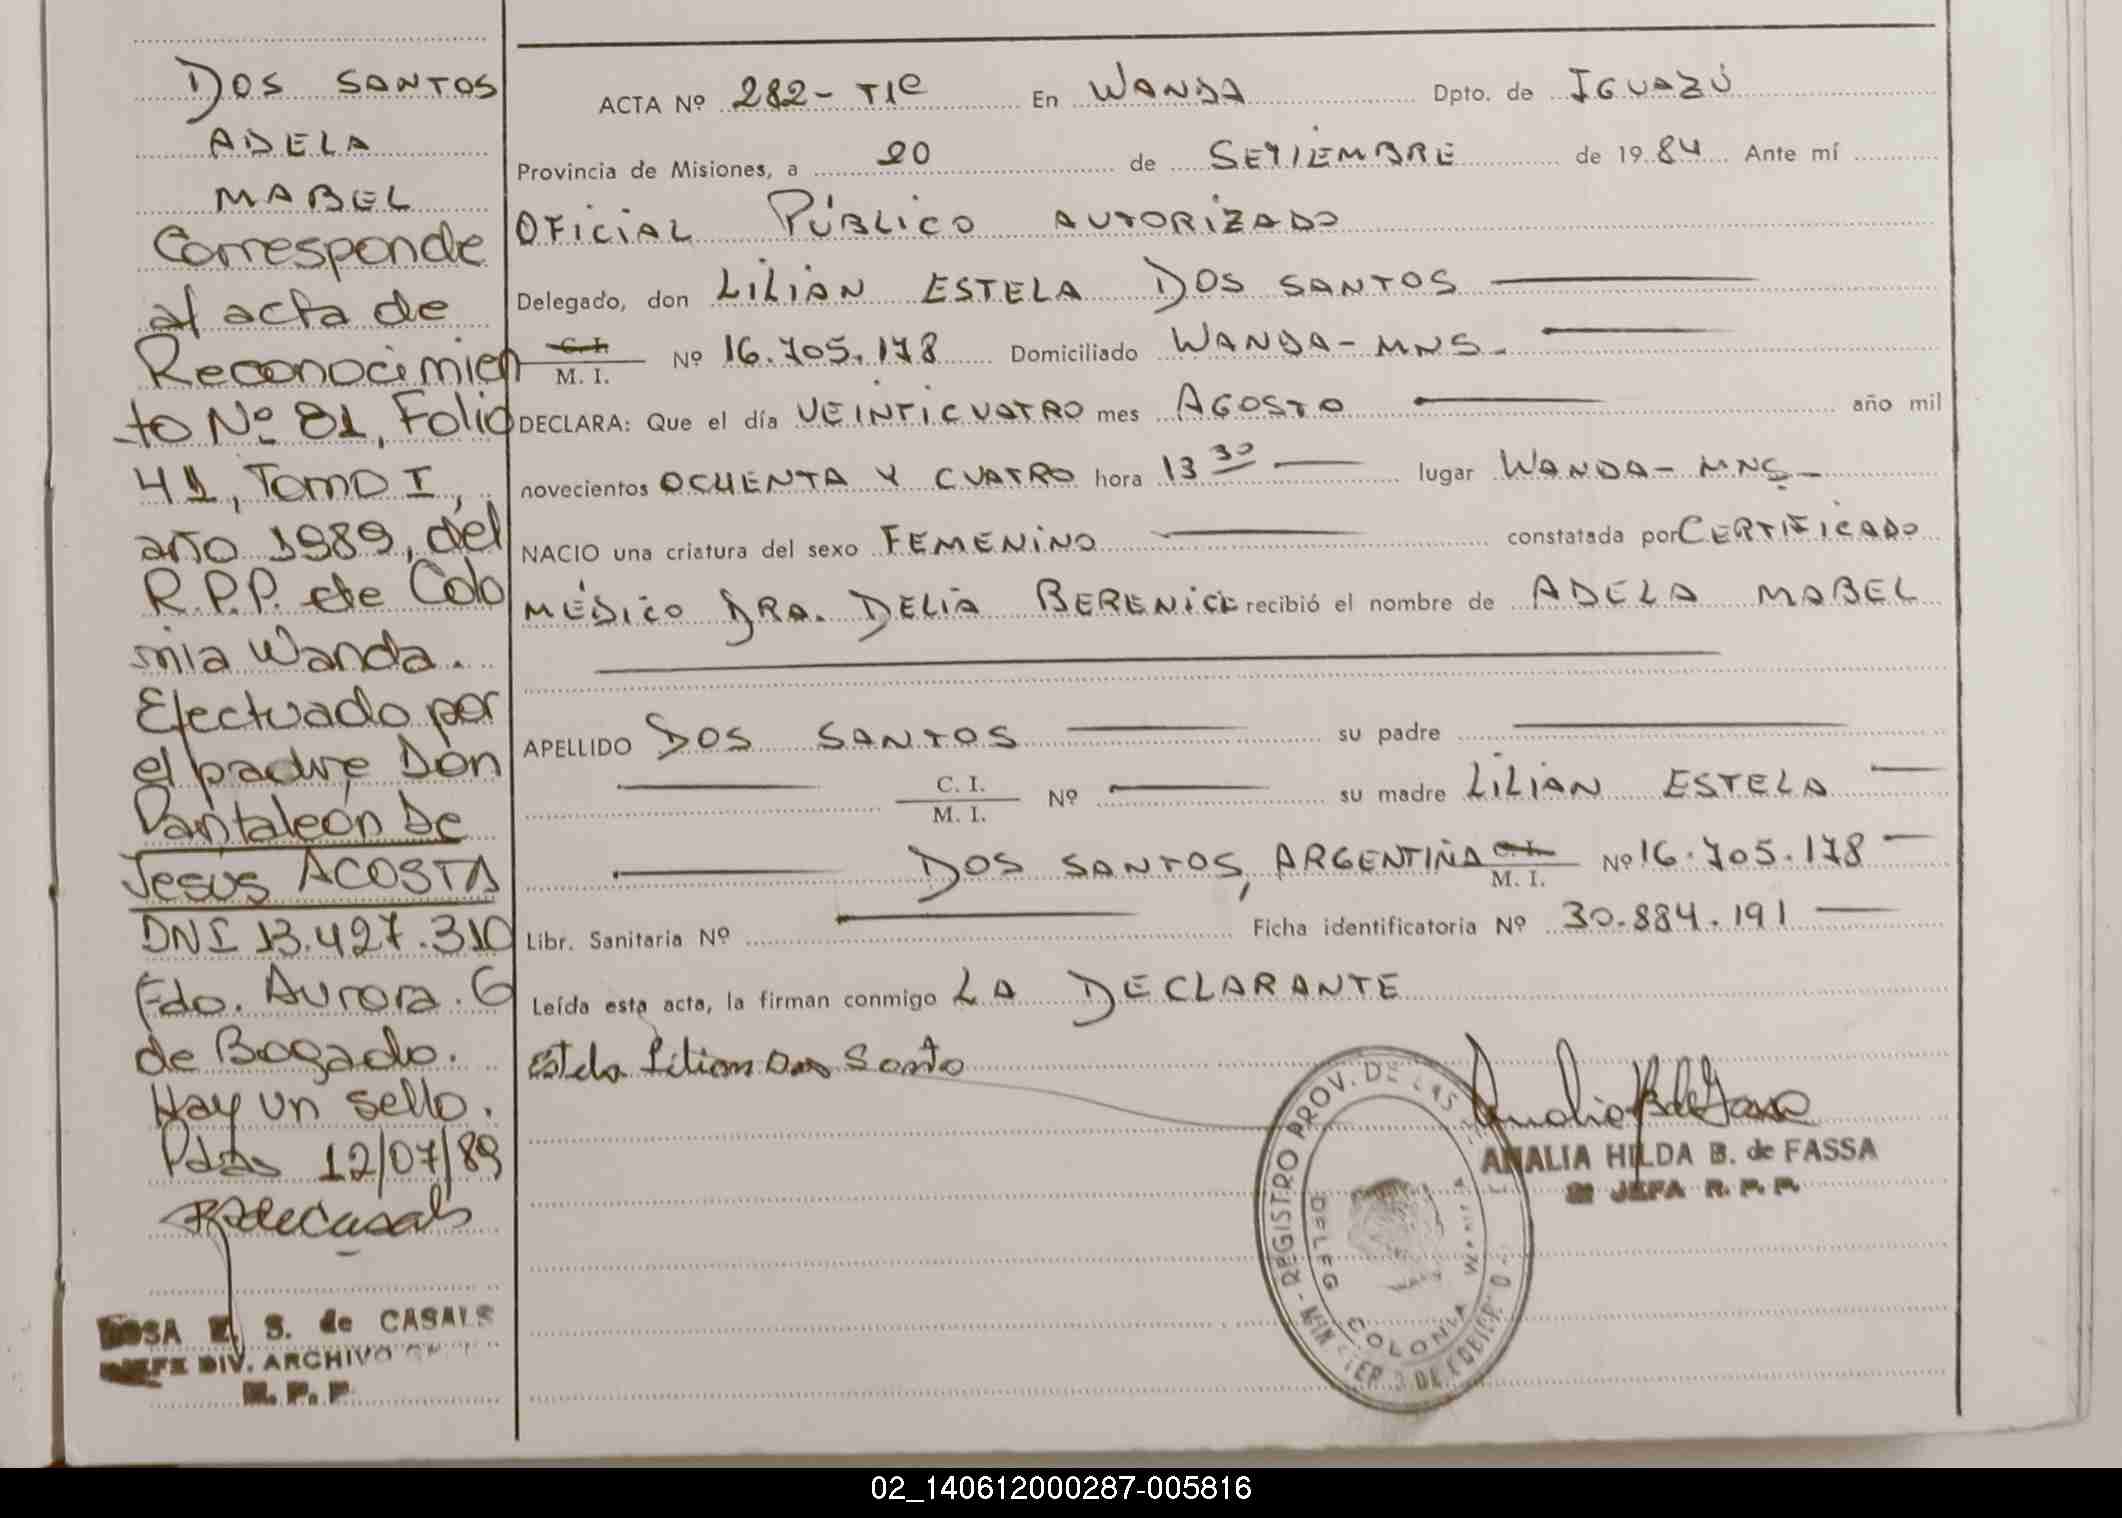 DOS SANTOS
ADELA
MABEL
Corresponde
al acta de
Reconocimien
to Nº 81, Folio
41, Tomo I,
año 1989, del
R.P.P. de Colo
nia Wanda.
Efectuado por
el padre Don
Pantaleón De
Jesús ACOSTA
DNI 13.427.310
Fdo. Aurora. G
de Bogado.
Hay un sello.
Pdas 12/07/89
RSdeCasals
ROSA E. S. de CASALS
JEFE DIV. ARCHIVO
R. P. P
ACTA Nº 282-TIº En WANDA Dpto. de IGUAZÚ
Provincia de Misiones, a 20 de SETIEMBRE de 1984 Ante mí
OFICIAL PÚBLICO AUTORIZADO
Delegado, don LILIAN ESTELA DOS SANTOS
C. I.
M. I. Nº 16.705.178 Domiciliado WANDA-MNS.
DECLARA: Que el día VEINTICUATRO mes AGOSTO año mil
novecientos OCHENTA Y CUATRO hora 13 30 lugar WANDA-MNS-
NACIO una criatura del sexo FEMENINO constatada por CERTIFICADO
MÉDICO DRA. DELIA BERENICE recibió el nombre de ADELA MABEL
APELLIDO DOS SANTOS su padre
C. I.
M. I. Nº su madre LILIAN ESTELA
DOS SANTOS, ARGENTINA C. I.
M. I. Nº 16.705.178
Libr. Sanitaria Nº Ficha identificatoria Nº 30.884.191
Leída esta acta, la firman conmigo LA DECLARANTE
Estela Lilian Dos Santo
AMALIA HILDA B. de FASSA
JEFA R. P. P.
REGISTRO PROV. DE LAS
DELEG COLONIA WANDA
MINISTERIO DE GOBIERNO
02_140612000287-005816